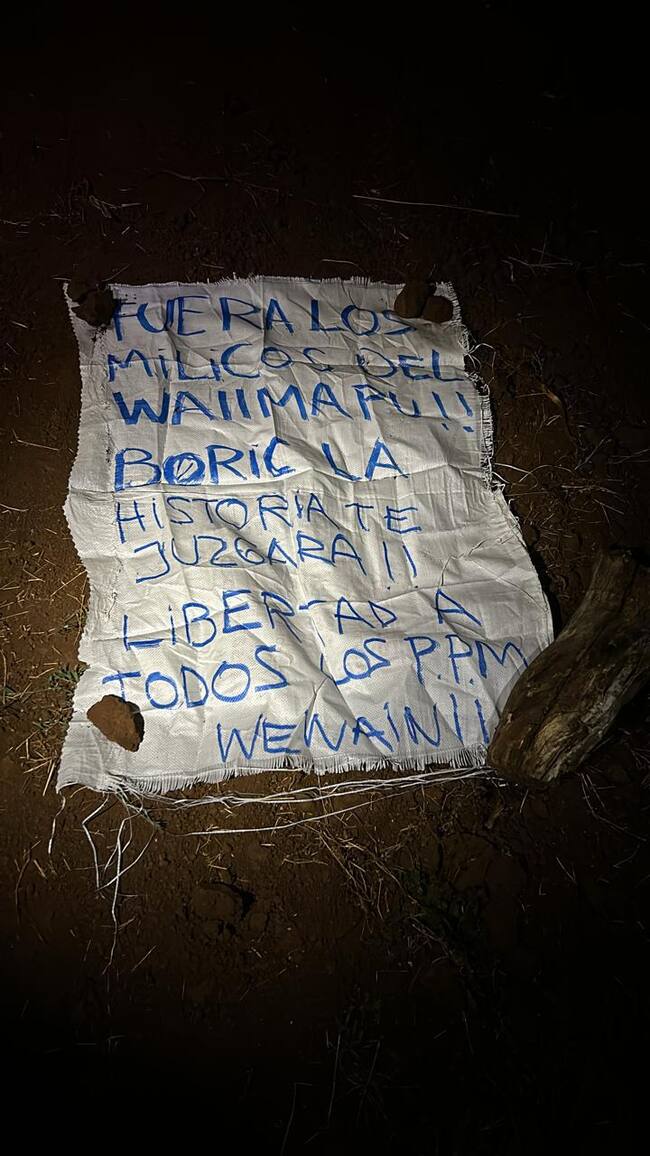 FUERA LOS
MiLiCOS DEL
WAIIMAPU!!
BORiC LA
HISTORIA TE
JUZGARA!!
LiBERTAD A
TODOS LOS P.P.M
WEWAIN!!